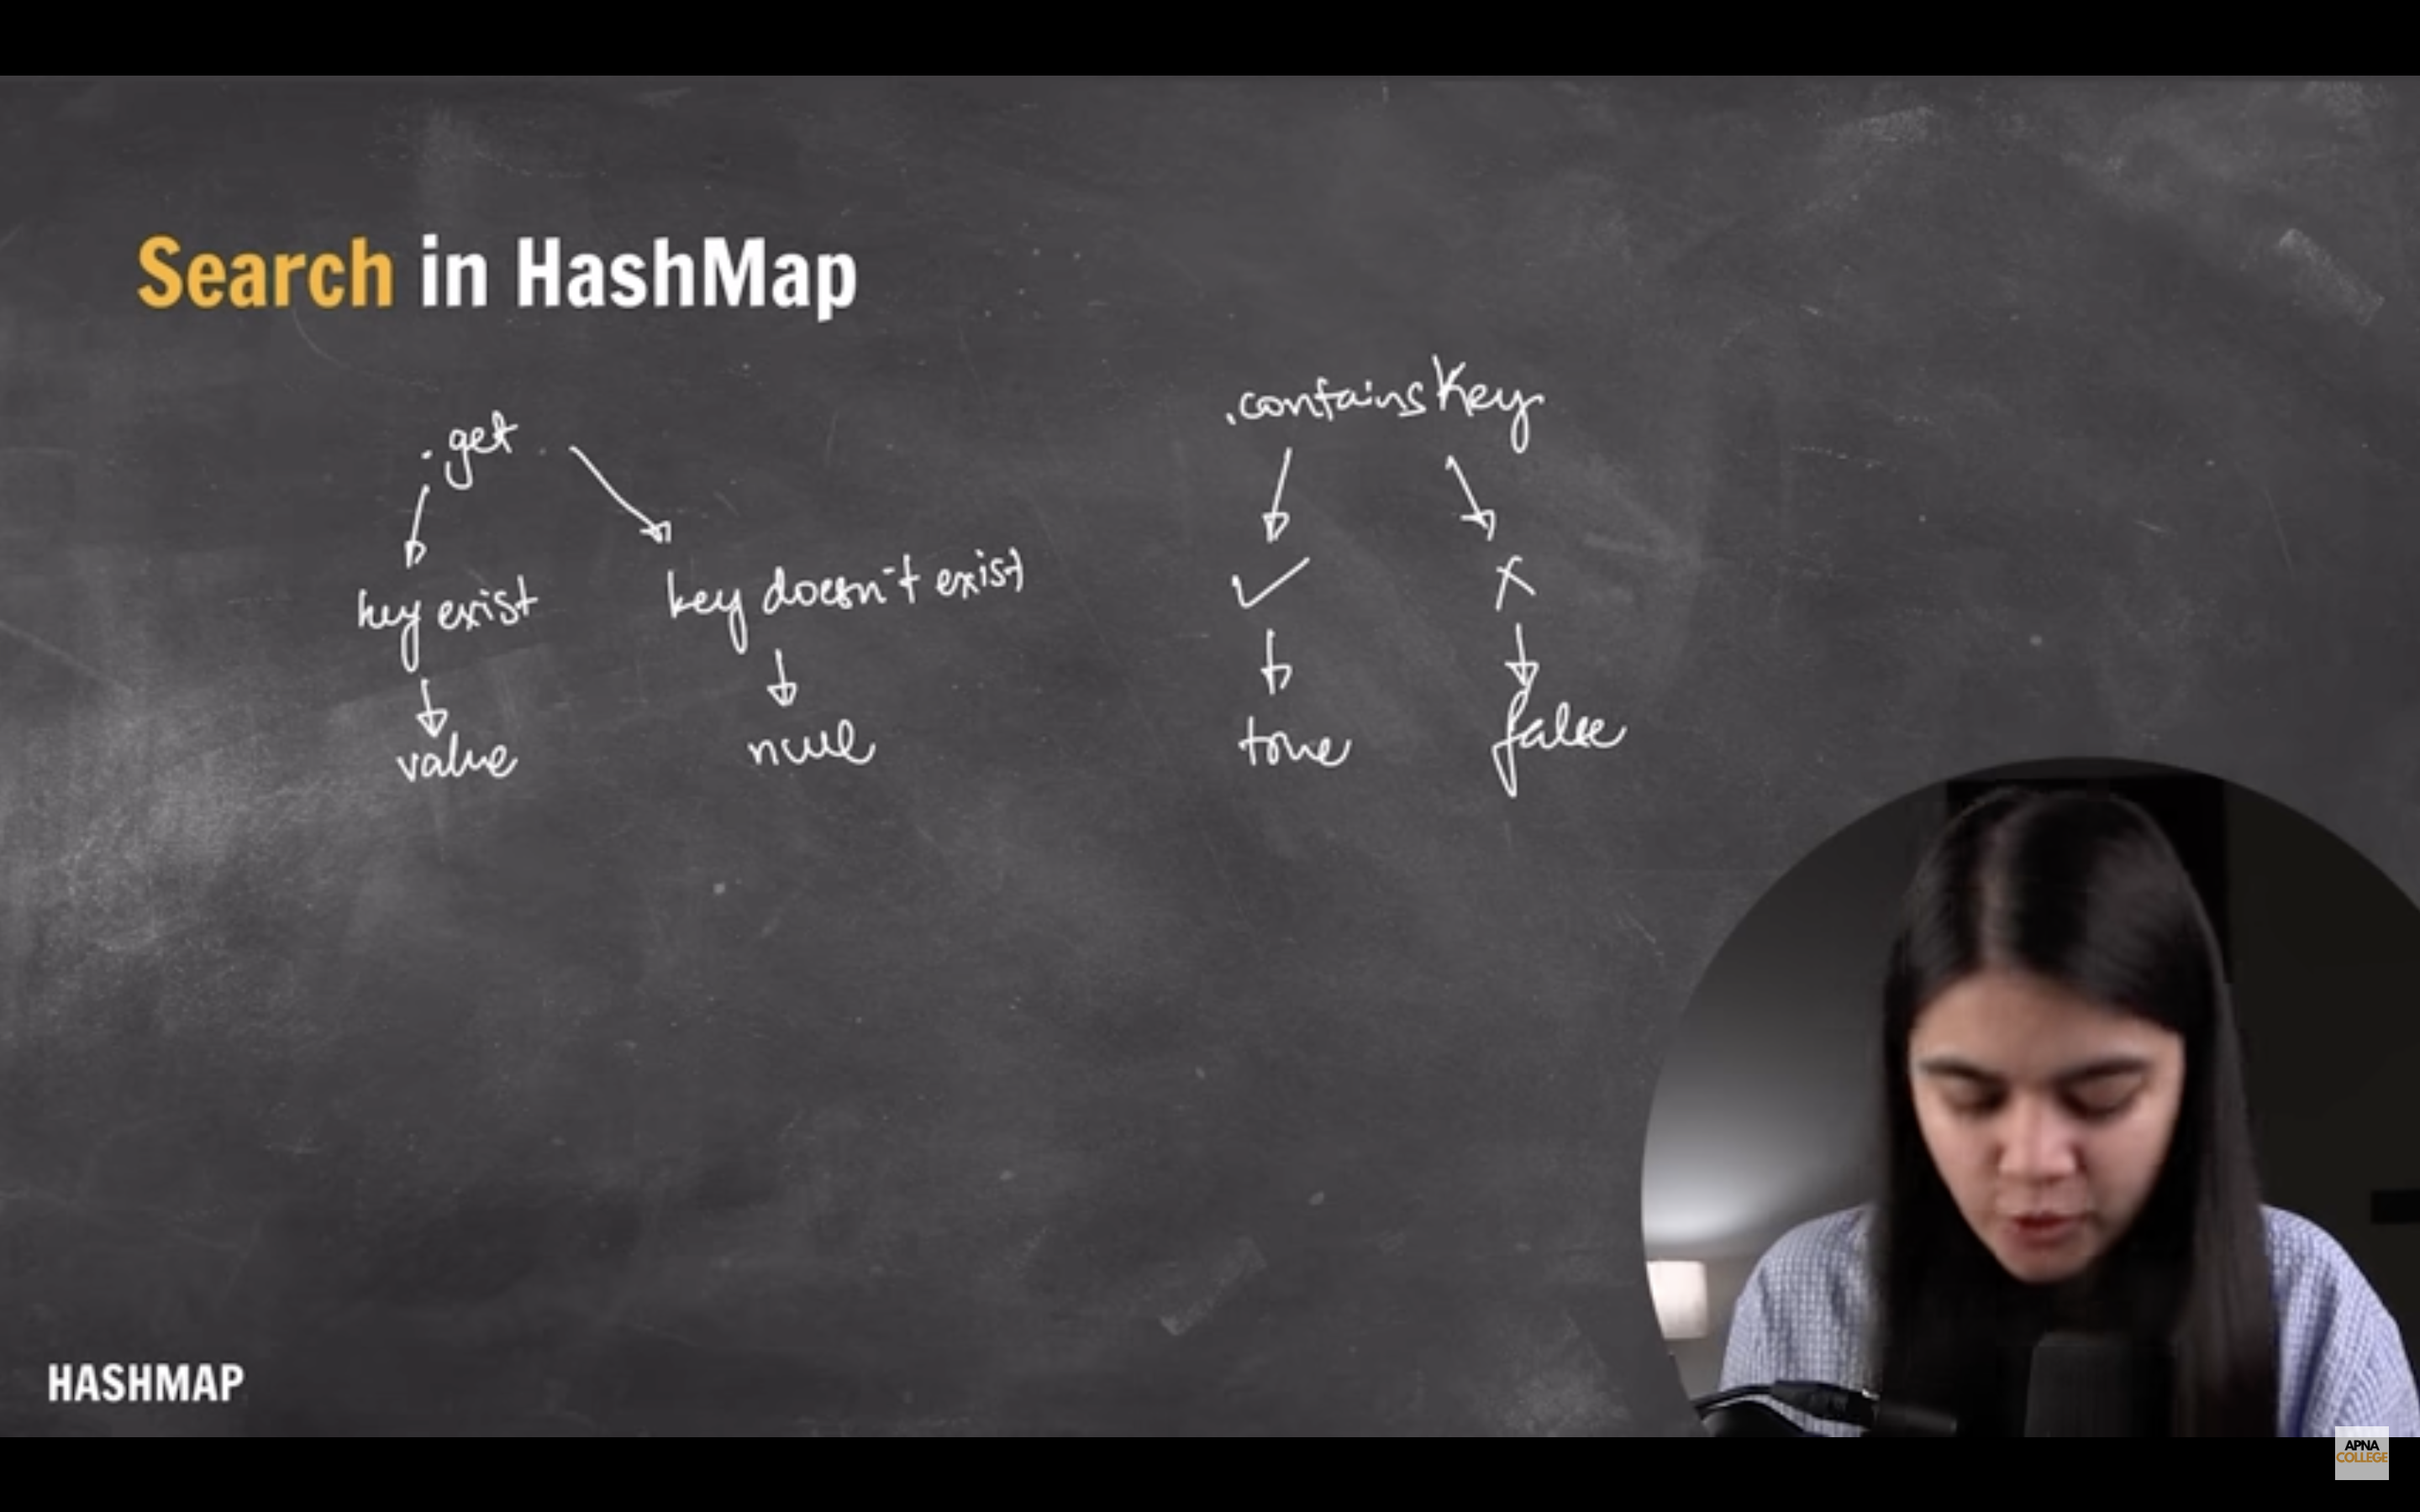 Search in HashMap
.get
key exist
value
key doesn't exist
null
.containsKey
✓
true
x
false
HASHMAP
APNA
COLLEGE